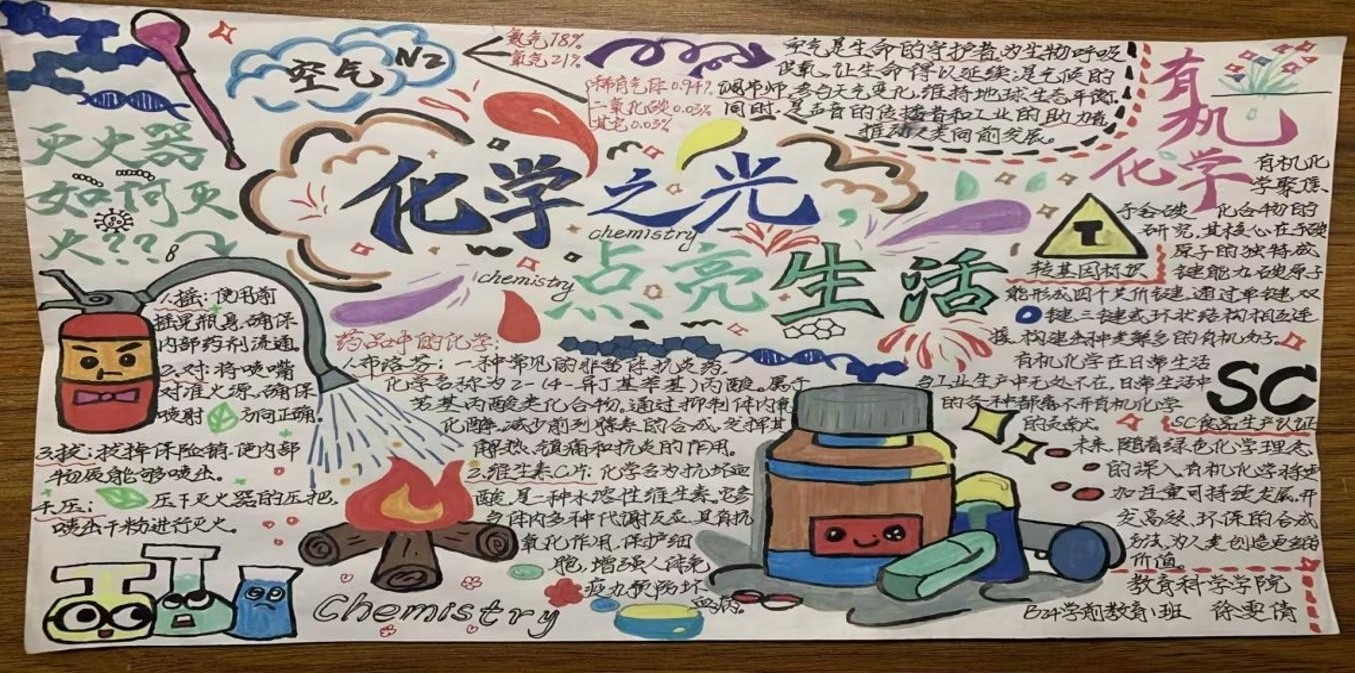 空气 N2
氮气78%
氧气21%
稀有气体0.94%
二氧化碳0.03%
其它0.03%
空气是生命的守护者,为生物呼吸
供氧,让生命得以延续;是气候的
调节师,参与天气变化,维持地球生态平衡.
同时,是声音的传播者和工业的助力者,
推动人类向前发展.
有机
化学
灭火器
如何灭
火???
化学之光
chemistry
点亮生活
chemistry
1.摇:使用前
摇晃瓶身,确保
内部药剂流通.
2.对:将喷嘴
对准火源,确保
喷射方向正确.
3.拔:拔掉保险销,使内部
物质能够喷出.
4.压:压下灭火器的压把,
喷出干粉进行灭火.
药品中的化学:
1.布洛芬:一种常见的非甾体抗炎药.
化学名称为2-(4-异丁基苯基)丙酸。属于
芳基丙酸类化合物。通过抑制体内氧
化酶,减少前列腺素的合成,发挥其
解热、镇痛和抗炎的作用。
2.维生素C片:化学名为抗坏血
酸,是一种水溶性维生素。它参
与体内多种代谢反应,具有抗
氧化作用,保护细
胞,增强人体免
疫力,预防坏
血病。
Chemistry
有机化
学聚焦
于含碳 化合物的
研究,其核心在于碳
原子的独特成
键能力.碳原子
能形成四个共价键,通过单键、双
键、三键或环状结构相互连
接,构建出种类繁多的有机分子.
T
转基因标识
有机化学在日常生活
与工业生产中无处不在,日常生活中
的各种都离不开有机化学
的贡献.
SC
SC食品生产认证
未来,随着绿色化学理念
的深入,有机化学将更
加注重可持续发展,开
发高效、环保的合成
方法,为人类创造更多的
价值。
教育科学学院
B24学前教育1班 徐雯倩